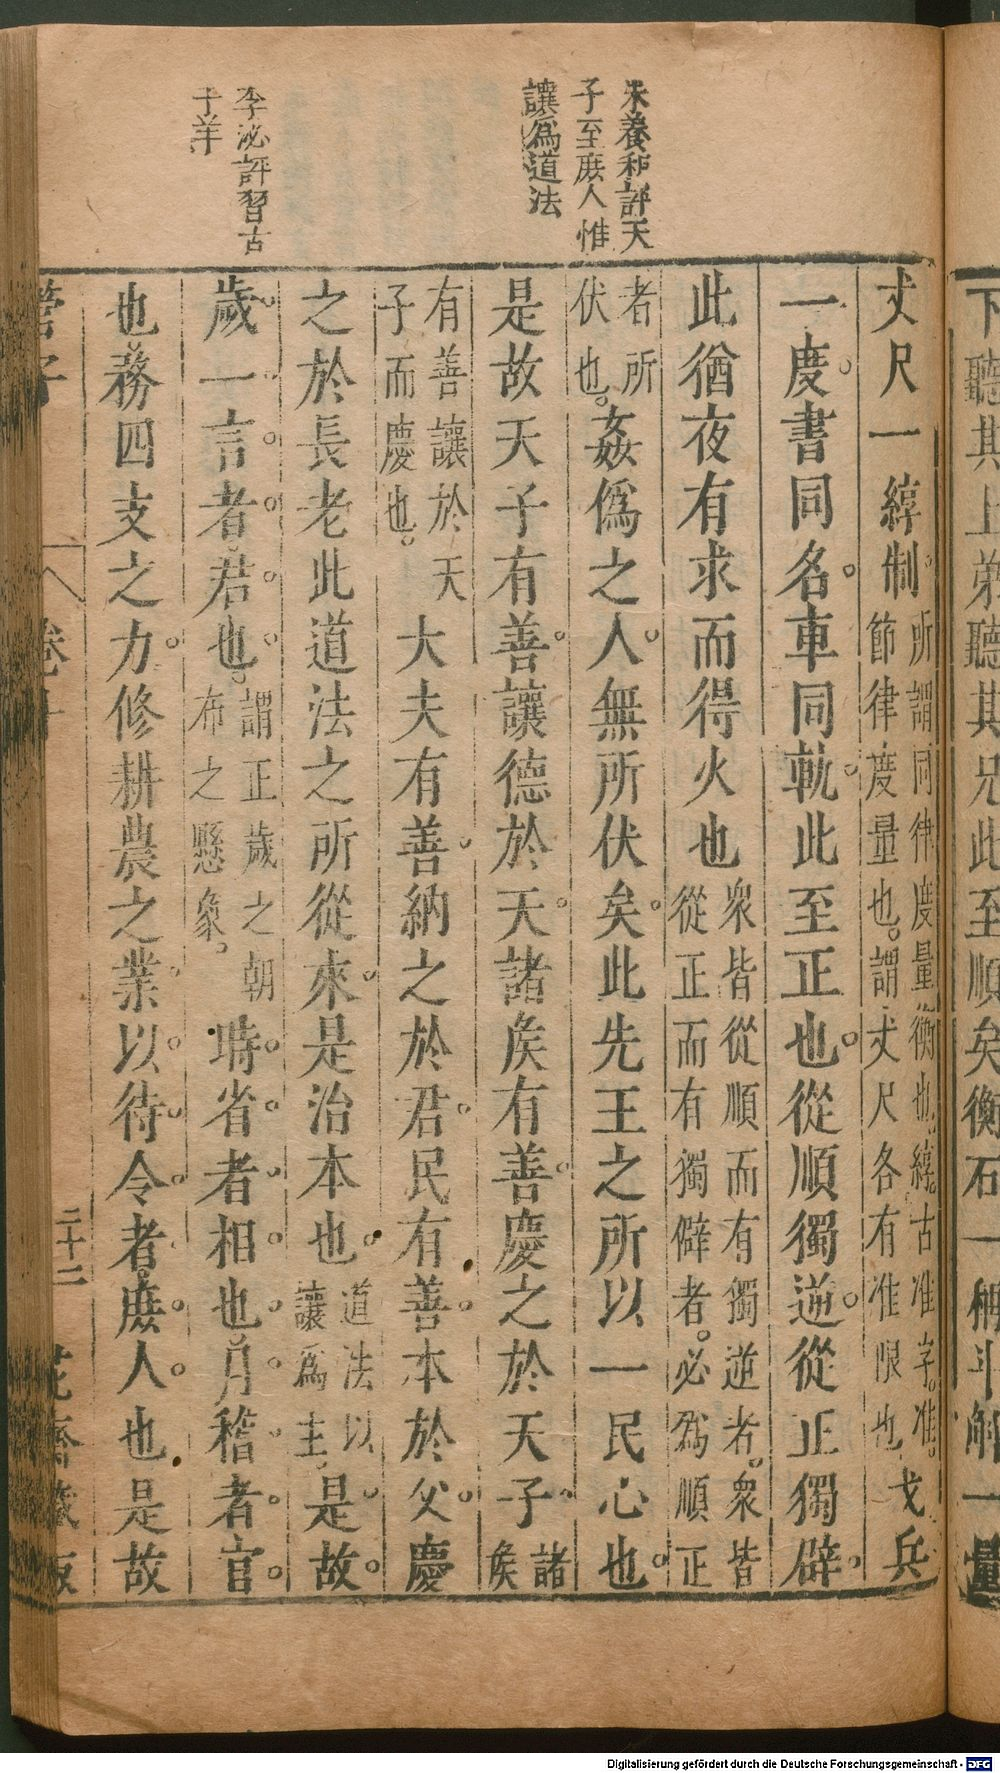 下聽其上弟聽其兄此至順矣衡石一稱斗斛一量
丈尺一綧制所謂同律度量衡也綧古准字准節律度量也謂丈尺各有准限也戈兵
一度書同名車同軌此至正也從順獨逆從正獨辟
此猶夜有求而得火也衆皆從順而有獨逆者衆皆從正而有獨僻者必爲順正
者所伏也姦僞之人無所伏矣此先王之所以一民心也
是故天子有善讓德於天諸侯有善慶之於天子諸侯
有善讓於天子而慶也大夫有善納之於君民有善本於父慶
之於長老此道法之所從來是治本也道法以讓爲主是故
歲一言者君也謂正歲之朝布之懸象時省者相也月稽者官
也務四支之力修耕農之業以待令者庶人也是故
朱養和評天
子至庶人惟
讓爲道法
李泌評習古
十羊
管子
卷十
二十二
花齋藏板
Digitalisierung gefördert durch die Deutsche Forschungsgemeinschaft - DFG